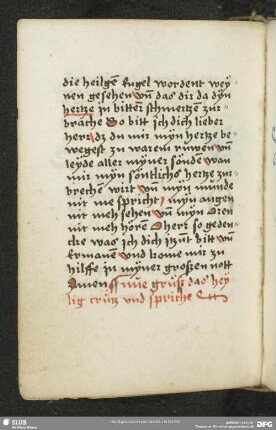 die heilgē Engel wordent wey
nen gesehen vn̄ das dir da dyn
hertze jn bittern schmertze zur-
brache So bitt jch dich lieber
herr dz du mir myn hertze be
wegest zu warem ruwen vn̄
leyde aller myner sönde wan
mir myn söntlichs hertze zur
brechē wirt vn̄ myn munde
nit me spricht myn augen
nit meh sehen vn̄ myn Oren
nit meh hören O herr so geden-
cke was jch dich itzūt bitt vn̄
ermanē vnd kome mir zu
hilffe jn myner großen nott
Amen nūe grüß das hey
lig crütz vnd spriche
SLUB
DFG